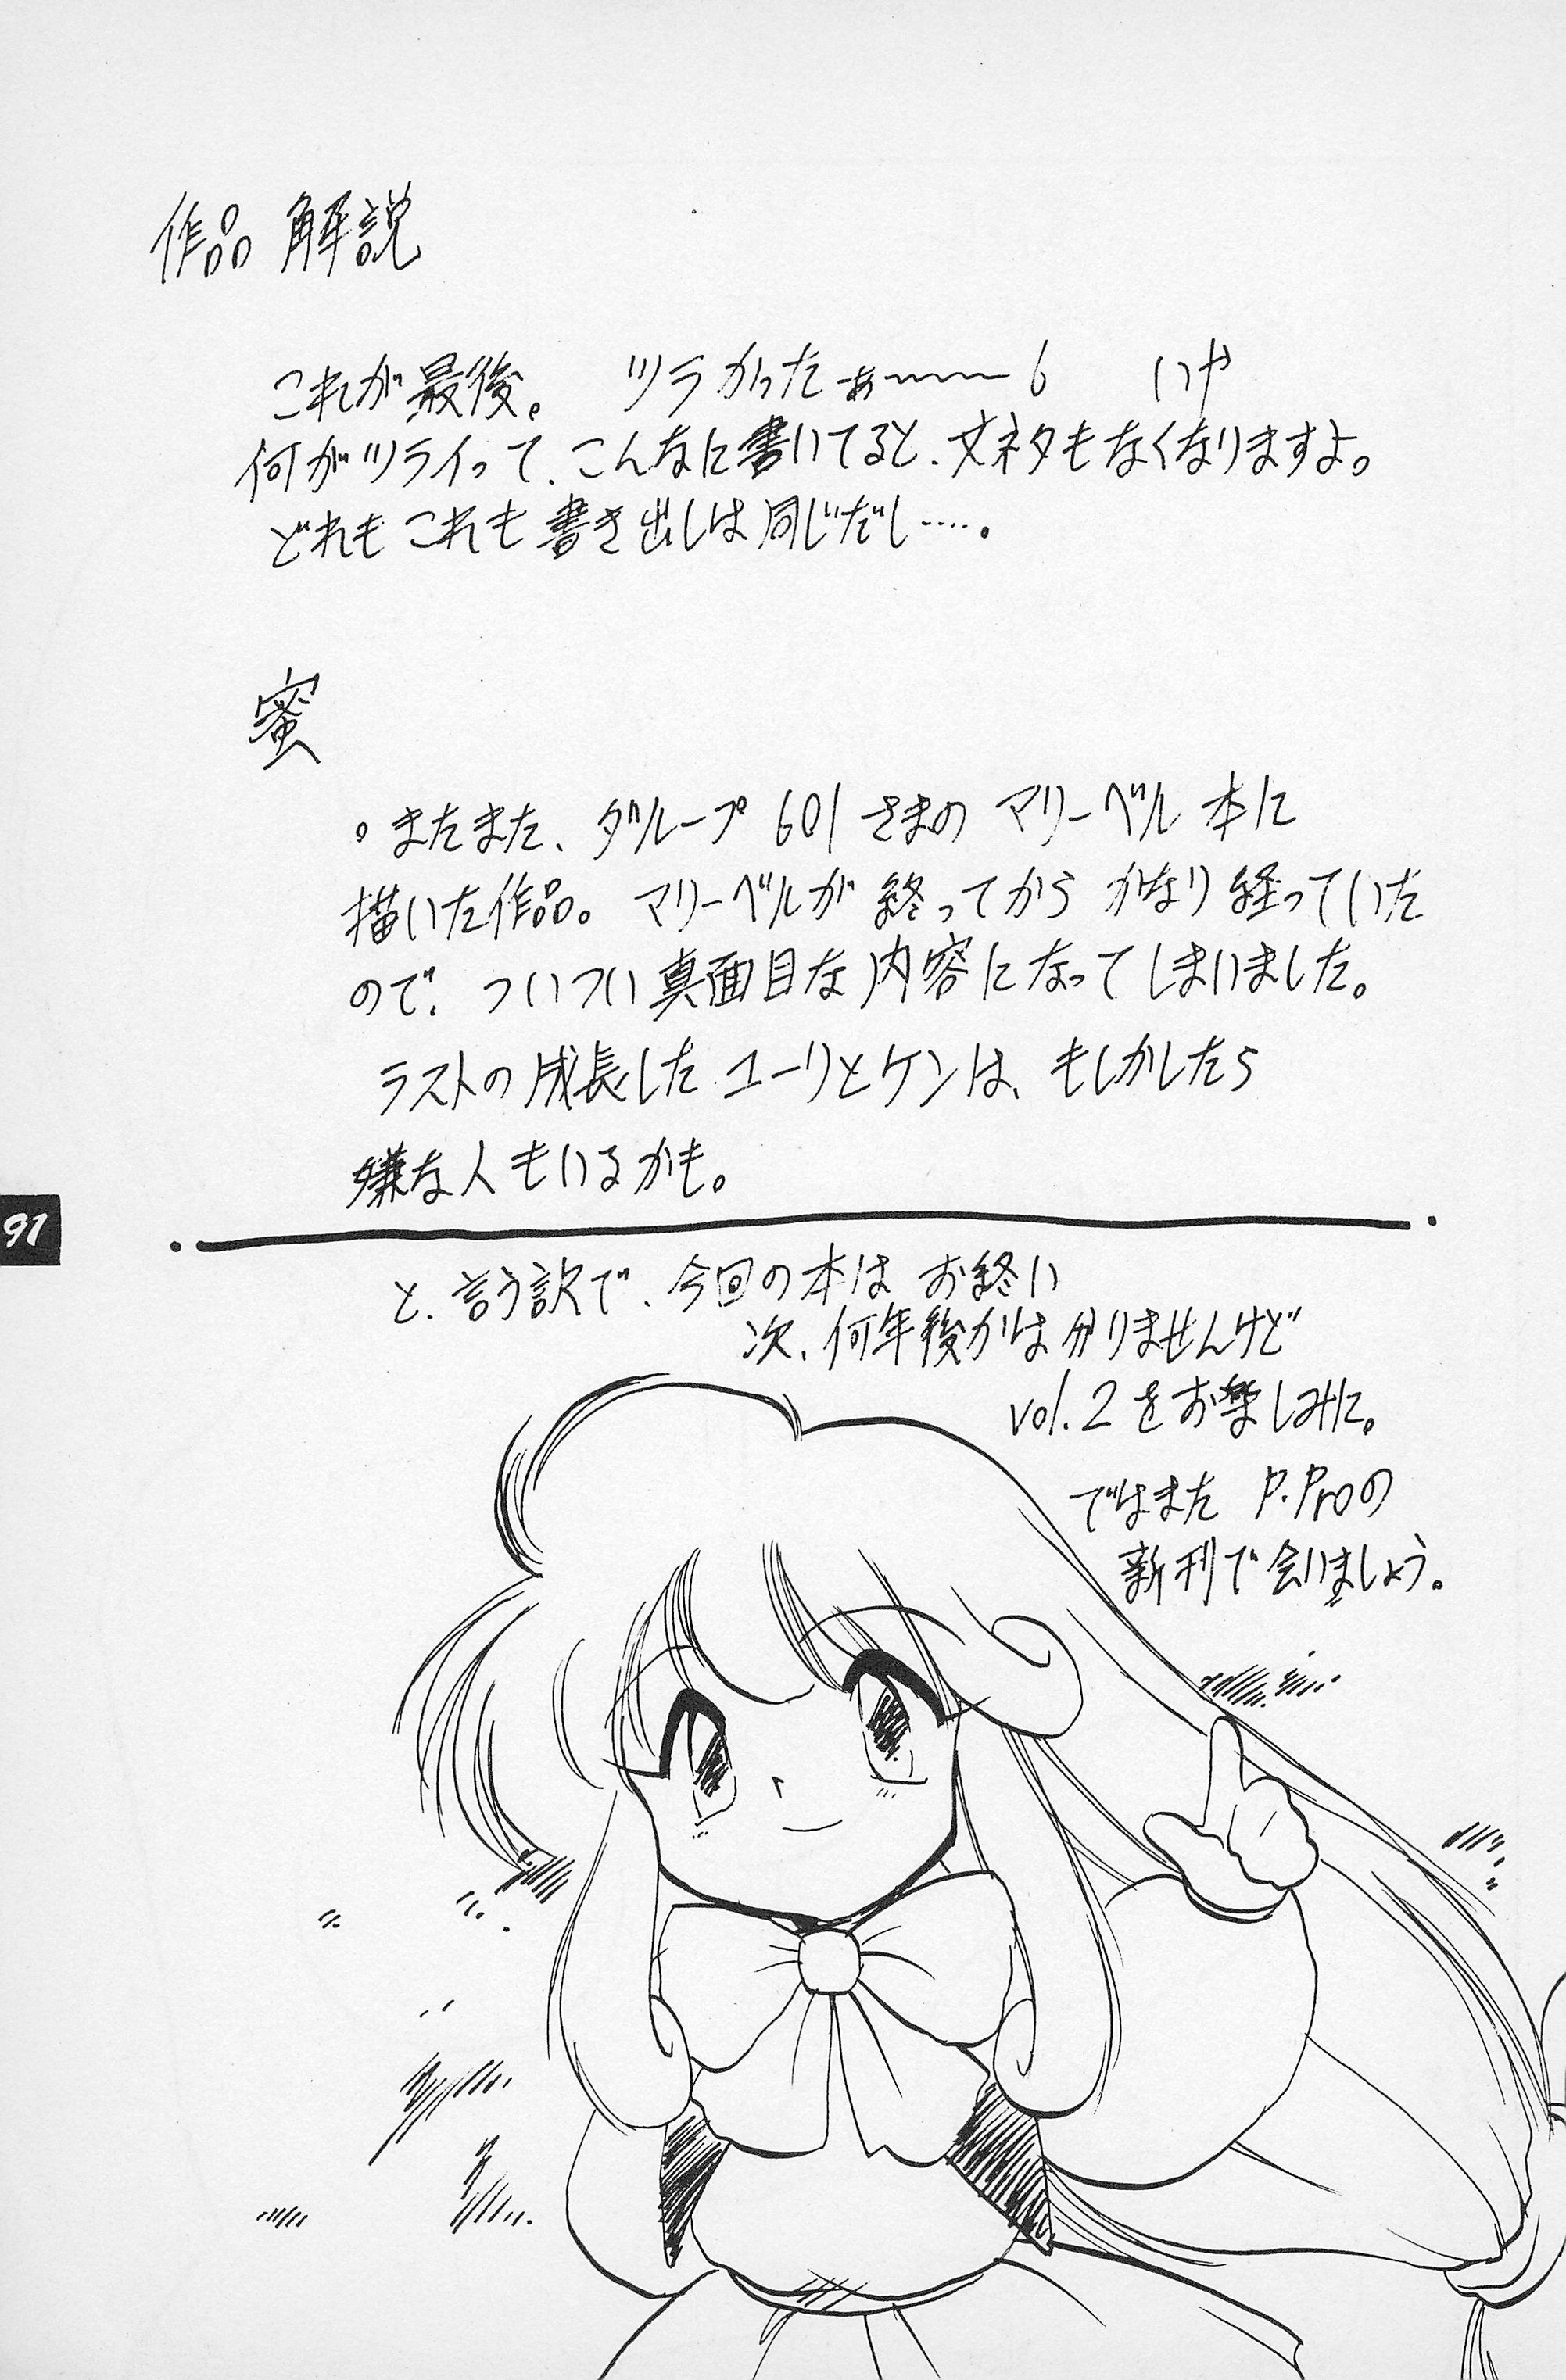 作品 解説
これが最後。 ツラかったぁ〜〜〜 いや
何がツライって、こんなに書いてると、文ネタもなくなりますよ。
どれもこれも書き出しは同じだし……。
蜜
。またまた、グループ601さまの マリーベル 本に
描いた作品。マリーベルが 終ってから かなり経っていた
ので、ついつい真面目な内容になってしまいました。
ラストの成長したユーリとケンは、もしかしたら
嫌な人もいるかも。
91
と、言う訳で、今回の本は お終い
次、何年後かは分りませんけど
vol.2をお楽しみに。
ではまた P.Proの
新刊で会いましょう。